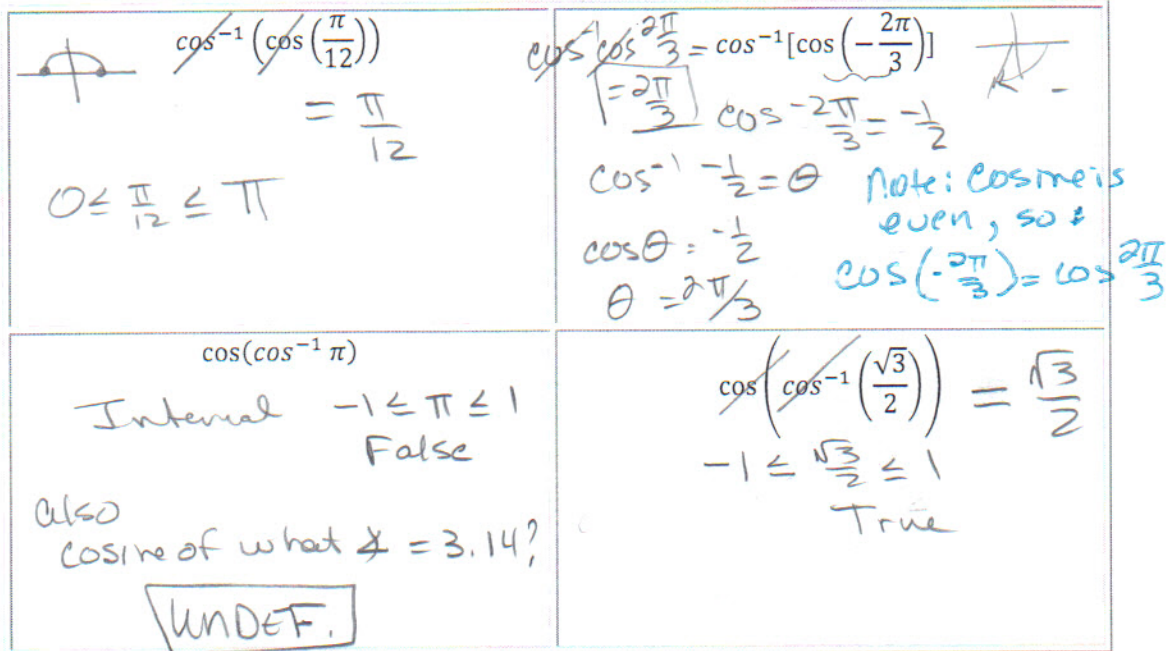 cos⁻¹(cos(π/12))
= π/12
0 ≤ π/12 ≤ π
cos⁻¹cos 2π/3 = cos⁻¹[cos(−2π/3)]
= 2π/3
cos −2π/3 = −1/2
cos⁻¹ −1/2 = θ
cosθ = −1/2
θ = 2π/3
Note: Cosine is
even, so :
cos(−2π/3) = cos 2π/3
cos(cos⁻¹ π)
Interval −1 ≤ π ≤ 1
False
also
cosine of what ∡ = 3.14?
UNDEF.
cos(cos⁻¹(√3/2)) = √3/2
−1 ≤ √3/2 ≤ 1
True